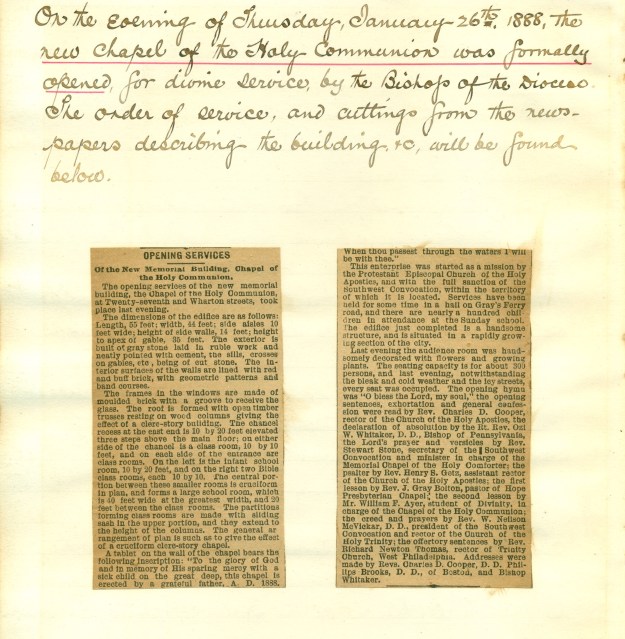 On the Evening of Thursday, January 26th, 1888, the
new Chapel of the Holy Communion was formally
opened, for divine service, by the Bishop of the Diocese.
The order of service, and cuttings from the news-
papers describing the building, &c, will be found
below.
OPENING SERVICES
Of the New Memorial Building, Chapel of
the Holy Communion.
The opening services of the new memorial
building, the Chapel of the Holy Communion,
at Twenty-seventh and Wharton streets, took
place last evening.
The dimensions of the edifice are as follows:
Length, 55 feet; width, 44 feet; side aisles 10
feet wide; height of side walls, 14 feet; height
to apex of gable, 35 feet. The exterior is
built of gray stone laid in ruble work and
neatly pointed with cement, the sills, crosses
on gables, etc., being of cut stone. The in-
terior surfaces of the walls are lined with red
and buff brick, with geometric patterns and
band courses.
The frames in the windows are made of
moulded brick with a groove to receive the
glass. The roof is formed with open timber
trusses resting on wood columns giving the
effect of a clere-story building. The chancel
recess at the east end is 10 by 20 feet elevated
three steps above the main floor; on either
side of the chancel is a class room, 10 by 10
feet, and on each side of the entrance are
class rooms. On the left is the infant school
room, 10 by 20 feet, and on the right two Bible
class rooms, each 10 by 10. The central por-
tion between these smaller rooms is cruciform
in plan, and forms a large school room, which
is 40 feet wide at the greatest width, and 20
feet between the class rooms. The partitions
forming class rooms are made with sliding
sash in the upper portion, and they extend to
the height of the columns. The general ar-
rangement of plan is such as to give the effect
of a cruciform clere-story chapel.
A tablet on the wall of the chapel bears the
following inscription: "To the glory of God
and in memory of His sparing mercy with a
sick child on the great deep, this chapel is
erected by a grateful father, A. D. 1888.
When thou passest through the waters I will
be with thee."
This enterprise was started as a mission by
the Protestant Episcopal Church of the Holy
Apostles, and with the full sanction of the
Southwest Convocation, within the territory
of which it is located. Services have been
held for some time in a hall on Gray's Ferry
road, and there are nearly a hundred chil-
dren in attendance at the Sunday school.
The edifice just completed is a handsome
structure, and is situated in a rapidly grow-
ing section of the city.
Last evening the audience room was hand-
somely decorated with flowers and growing
plants. The seating capacity is for about 300
persons, and last evening, notwithstanding
the bleak and cold weather and the icy streets,
every seat was occupied. The opening hymn
was "O bless the Lord, my soul," the opening
sentences, exhortation and general confes-
sion were read by Rev. Charles D. Cooper,
rector of the Church of the Holy Apostles, the
declaration of absolution by the Rt. Rev. Ozi
W. Whitaker, D. D., Bishop of Pennsylvania,
the Lord's prayer and versicles by Rev.
Stewart Stone, secretary of the Southwest
Convocation and minister in charge of the
Memorial Chapel of the Holy Comforter; the
psalter by Rev. Henry S. Getz, assistant rector
of the Church of the Holy Apostles; the first
lesson by Rev. J. Gray Bolton, pastor of Hope
Presbyterian Chapel; the second lesson by
Mr. William F. Ayer, student of Divinity, in
charge of the Chapel of the Holy Communion;
the creed and prayers by Rev. W. Nelson
McVickar, D. D., president of the Southwest
Convocation and rector of the Church of the
Holy Trinity; the offertory sentences by Rev.
Richard Newton Thomas, rector of Trinity
Church, West Philadelphia. Addresses were
made by Revs. Charles D. Cooper, D. D. Phil-
lips Brooks, D. D., of Boston, and Bishop
Whitaker.